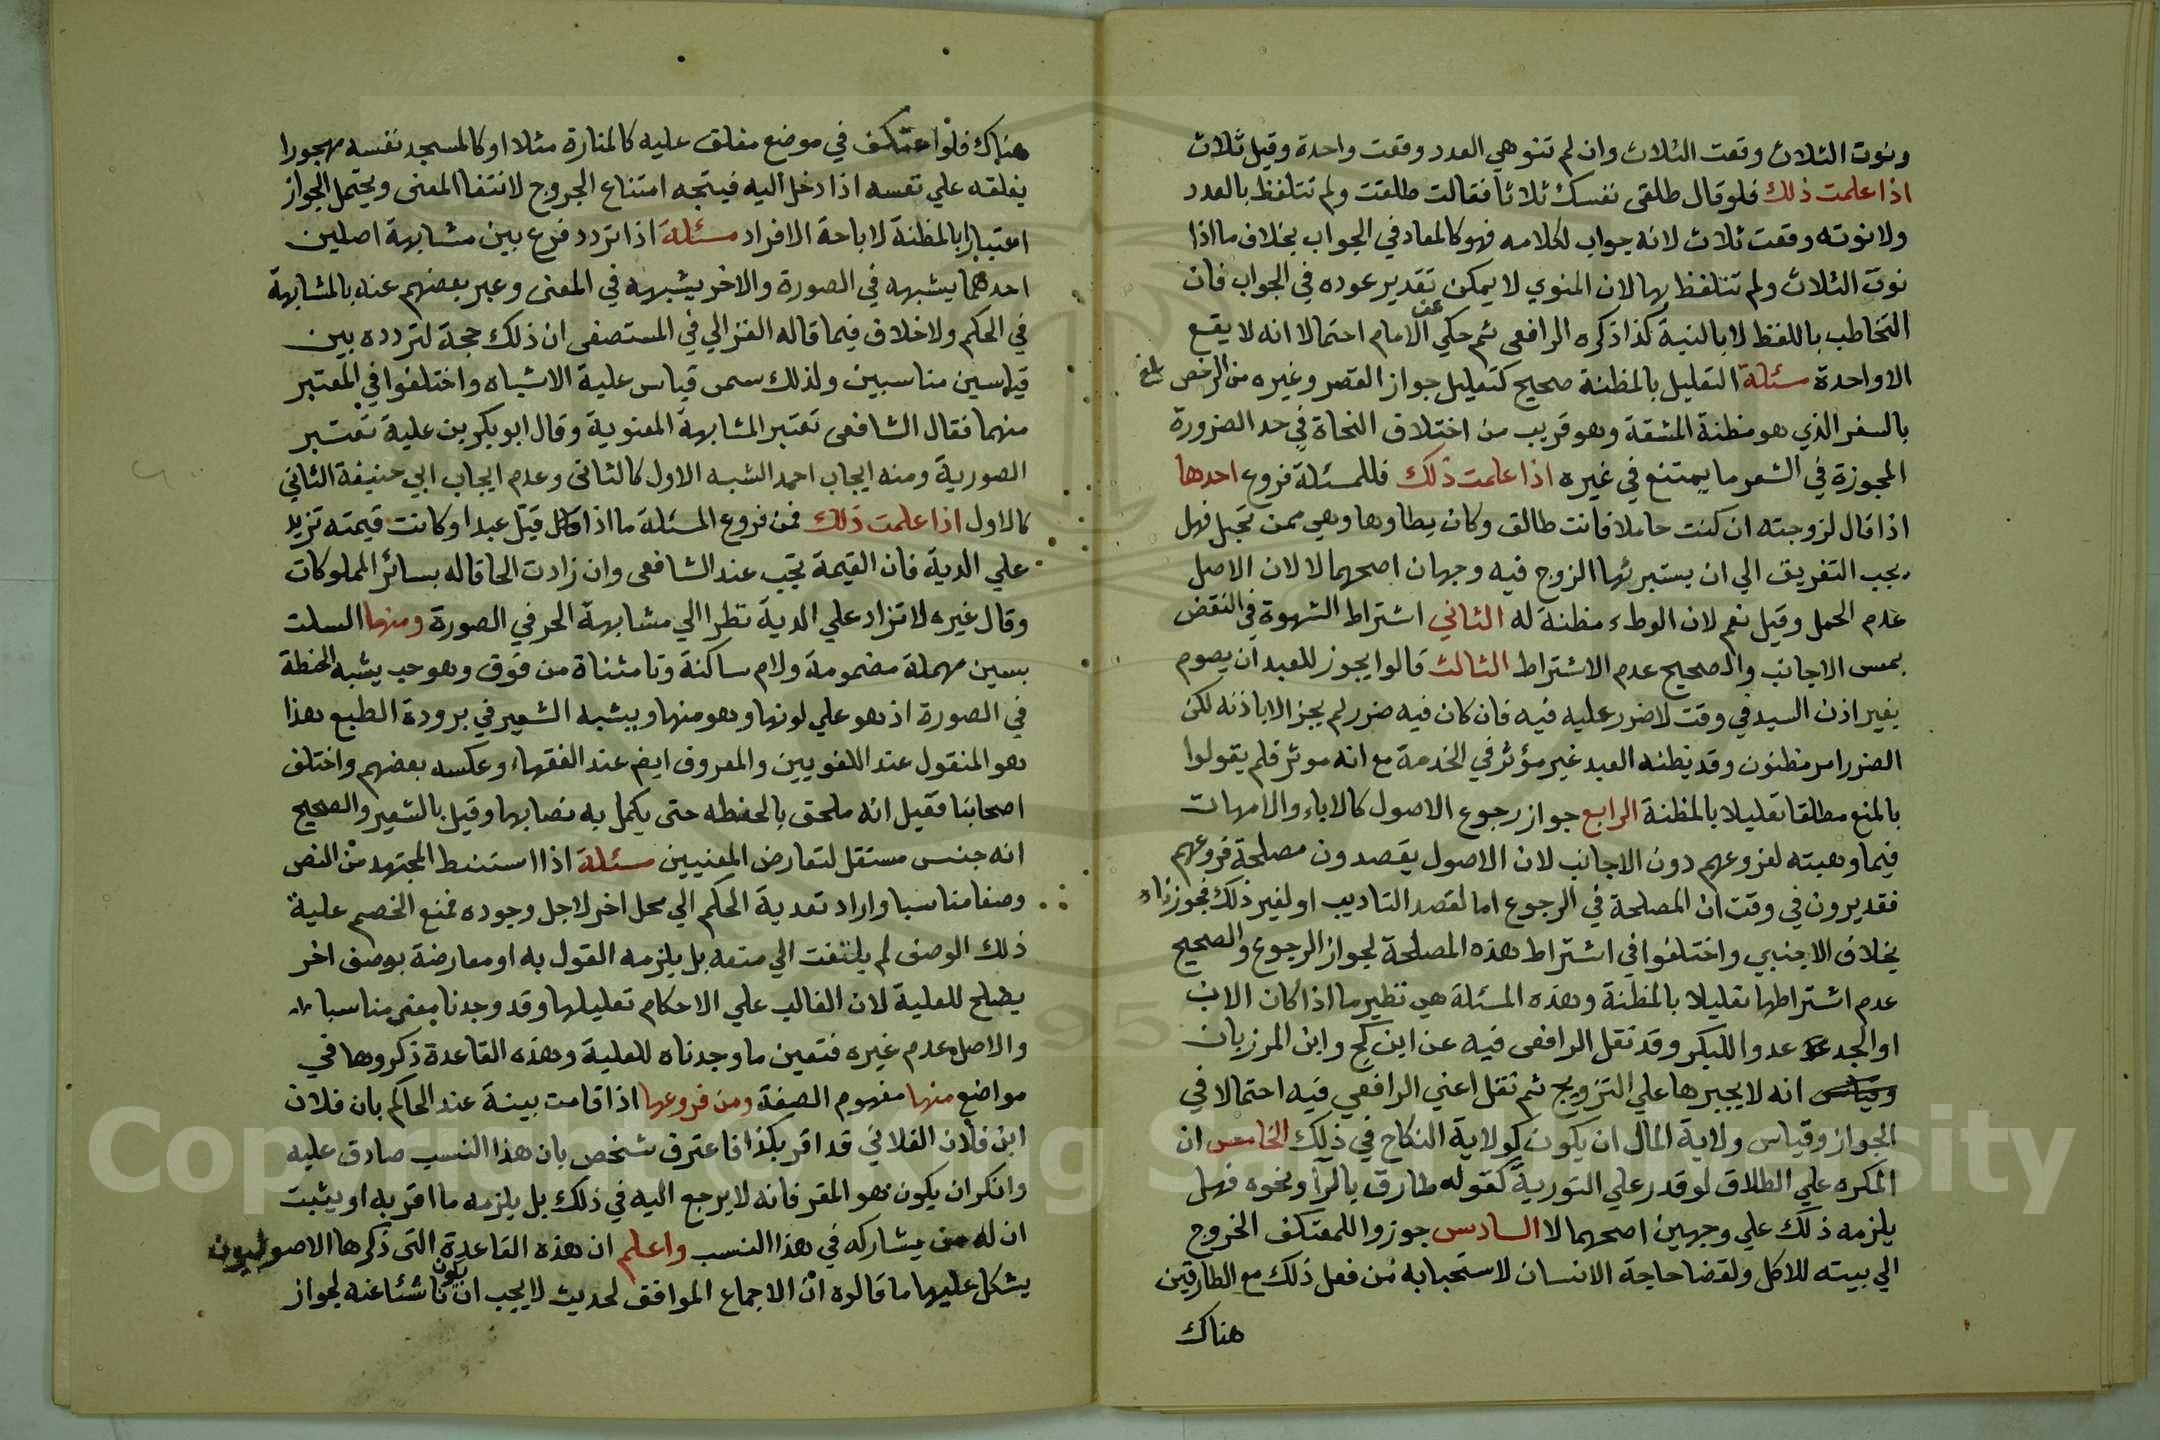 ونوت الثلاث وقعت الثلاث وان لم تنو هي العدد وقعت واحدة وقيل ثلاث
اذا علمت ذلك فلو قال طلقي نفسك ثلاثا فقالت طلقت ولم تتلفظ بالعدد
ولا نوته وقعت ثلاث لانه جواب لكلامه فهو كالمعاد في الجواب بخلاف ما اذا
نوت الثلاث ولم تتلفظ بها لان المنوي لا يمكن تقدير عوده في الجواب فان
التخاطب باللفظ لا بالنية كذا ذكره الرافعي ثم حكي عن الامام احتمالا انه لا يقع
الا واحدة مسئلة التعليل بالمظنة صحيح كتعليل جواز القصر وغيره من الرخص
بالسفر الذي هو مظنة المشقة وهو قريب من اختلاف النحاة في حد الضرورة
المجوزة في الشعر ما يمتنع في غيره اذا علمت ذلك فللمسئلة فروع احدها
اذا قال لزوجته ان كنت حاملا فانت طالق وكان يطاوها وهي ممن تحبل فهل
يجب التفريق الي ان يستبرئها الزوج فيه وجهان اصحهما لا لان الاصل
عدم الحمل وقيل نعم لان الوطء مظنة له الثاني اشتراط الشهوة في النقض
بمس الاجانب والصحيح عدم الاشتراط الثالث قالوا يجوز للعبد ان يصوم
بغير اذن السيد في وقت لا ضرر عليه فيه فان كان فيه ضرر لم يجز الا باذنه لكن
الضرر امر مظنون وقد يظنه العبد غير مؤثر في الخدمة مع انه موثر فلم يقولوا
بالمنع مطلقا تعليلا بالمظنة الرابع جواز رجوع الاصول كالاباء والامهات
فيما وهبته لفروعهم دون الاجانب لان الاصول يقصدون مصلحة فروعهم
فقد يرون في وقت ان المصلحة في الرجوع اما لقصد التاديب او لغير ذلك فجوزناه
بخلاف الاجنبي واختلفوا في اشتراط هذه المصلحة لجواز الرجوع والصحيح
عدم اشتراطها تعليلا بالمظنة وهذه المسئلة هي نظير ما اذا كان الاب
او الجد عدوا للبكر وقد نقل الرافعي فيه عن ابن كج وابن المرزبان
انه لا يجبرها علي التزويج ثم نقل اعني الرافعي فيه احتمالا في
الجواز وقياس ولاية المال ان يكون كولاية النكاح في ذلك الخامس ان
المكره علي الطلاق لو قدر علي التورية كقوله طارق بالرآ ونحوه فهل
يلزمه ذلك علي وجهين اصحهما لا السادس جوزوا للمعتكف الخروج
الي بيته للاكل ولقضا حاجة الانسان لاستحبابه من فعل ذلك مع الطارقين
هناك
هناك فلو اعتكف في موضع مغلق عليه كالمنارة مثلا او كالمسجد نفسه مهجورا
يغلقه علي نفسه اذا دخل اليه فيتجه امتناع الخروج لانتفا المعنى ويحتمل الجواز
اعتبارا بالمظنة لا باحة الافراد مسئلة اذا تردد فرع بين مشابهة اصلين
احدهما يشبهه في الصورة والاخر يشبهه في المعنى وعبر بعضهم عنه بالمشابهة
في الحكم ولا خلاف فيما قاله الغزالي في المستصفى ان ذلك حجة لتردده بين
قياسين مناسبين ولذلك سمى قياس علية الاشباه واختلفوا في المعتبر
منهما فقال الشافعي تعتبر المشابهة المعنوية وقال ابو بكر بن علية تعتبر
الصورية ومنه ايجاب احمد الشبه الاول كالثاني وعدم ايجاب ابي حنيفة الثاني
كالاول اذا علمت ذلك فمن فروع المسئلة ما اذا قتل عبدا وكانت قيمته تزيد
علي الدية فان القيمة تجب عند الشافعي وان زادت الحاقا له بسائر المملوكات
وقال غيره لا تزاد علي الدية نظرا الي مشابهة الحر في الصورة ومنها السلت
بسين مهملة مضمومة ولام ساكنة وتا مثناة من فوق وهو حب يشبه الحنطة
في الصورة اذ هو علي لونها وهو منها ويشبه الشعير في برودة الطبع هذا
هو المنقول عند اللغويين والمعروف ايض عند الفقهاء وعكسه بعضهم واختلف
اصحابنا فقيل انه ملحق بالحنطه حتى يكمل به نصابها وقيل بالشعير والصحيح
انه جنس مستقل لتعارض المعنيين مسئلة اذا استنبط المجتهد من النص
وصفا مناسبا واراد تعدية الحكم الي محل اخر لاجل وجوده فمنع الخصم علية
ذلك الوصف لم يلتفت الي منعه بل يلزمه القول به او معارضة بوصف اخر
يصلح للعلية لان الغالب علي الاحكام تعليلها وقد وجدنا معنى مناسبا
والاصل عدم غيره فتعين ما وجدناه للعلية وهذه القاعدة ذكروها في
مواضع منها مفهوم الصفة ومن فروعها اذا قامت بينة عند الحاكم بان فلان
ابن فلان الفلاني قد اقر بكذا فاعترف شخص بان هذا النسب صادق عليه
وانكر ان يكون هو المقر فانه لا يرجع اليه في ذلك بل يلزمه ما اقر به او يثبت
ان له من يشاركه في هذا النسب واعلم ان هذه القاعدة التي ذكرها الاصوليون
يشكل عليها ما قالوه ان الاجماع الموافق لحديث لا يجب ان يكون ناشئا عنه لجواز
Copyright © King Saud University